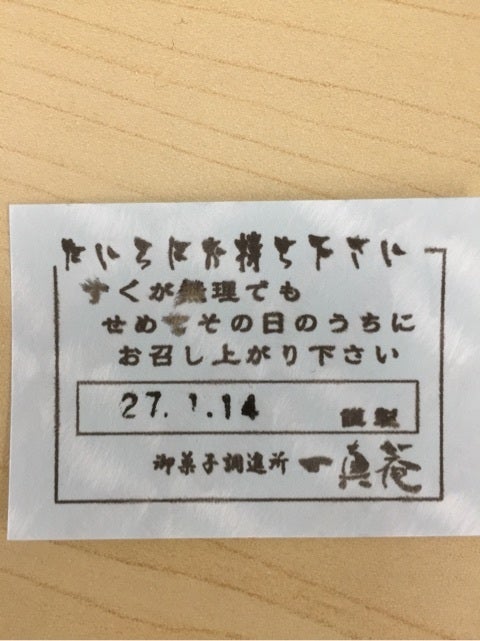 たいらにお持ち下さい
すぐが無理でも
せめてその日のうちに
お召し上がり下さい
27. 1.14 謹製
御菓子調進所 一真菴